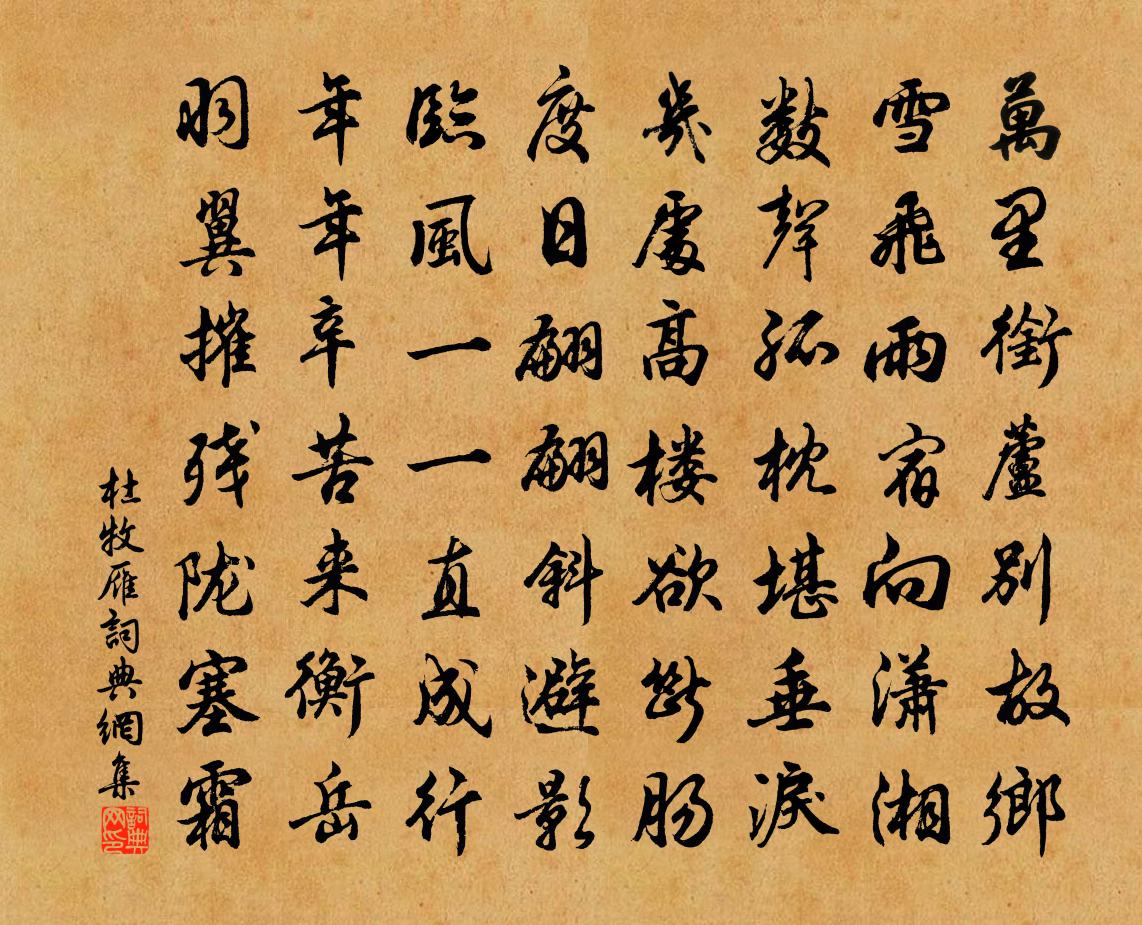 萬里銜蘆別故鄉
雪飛雨宿向瀟湘
數聲孤枕堪垂淚
幾處高楼欲斷腸
度日翩翩斜避影
臨風一一直成行
年年辛苦来衡岳
羽翼摧残陇塞霜
杜牧雁詞典網集
詞典网印